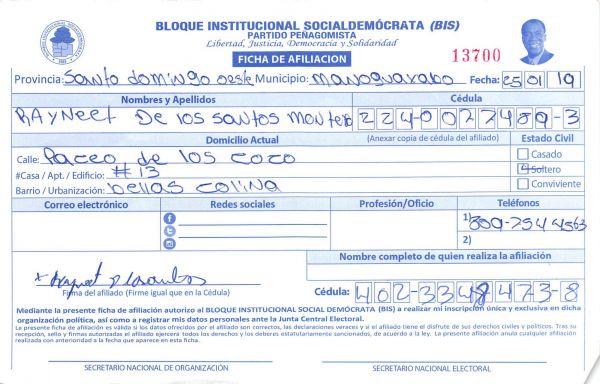 BLOQUE INSTITUCIONAL SOCIALDEMÓCRATA (BIS)
PARTIDO PEÑAGOMISTA
Libertad, Justicia, Democracia y Solidaridad
FICHA DE AFILIACION
13700
Provincia: Santo domingo oeste Municipio: manoguayabo Fecha: 25 01 19
Nombres y Apellidos Cédula
RAyneet De los santos montero 224-0027489-3
Domicilio Actual (Anexar copia de cédula del afiliado) Estado Civil
Calle: Paceo de los coco Casado
#Casa / Apt. / Edificio: #13 Soltero
Barrio / Urbanización: bellas colina Conviviente
Correo electrónico Redes sociales Profesión/Oficio Teléfonos
1) 809-754 4563
2)
Nombre completo de quien realiza la afiliación
Firma del afiliado (Firme igual que en la Cédula) Cédula: 402-3348473-8
Mediante la presente ficha de afiliación autorizo al BLOQUE INSTITUCIONAL SOCIAL DEMÓCRATA (BIS) a realizar mi inscripción única y exclusiva en dicha
organización política, así como a registrar mis datos personales ante la Junta Central Electoral.
La presente ficha de afiliación es válida si los datos ofrecidos por el afiliado son correctos, las declaraciones veraces y si el afiliado tiene el disfrute de sus derechos civiles y políticos. Tras su
recepción, sello y firmas autorizadas el afiliado ejercerá todos los derechos y los deberes estatutariamente sancionados, de acuerdo a la ley. La presente afiliación anula cualquier afiliación
realizada con anterioridad a la fecha que aparece en esta ficha.
SECRETARIO NACIONAL DE ORGANIZACIÓN. SECRETARIO NACIONAL ELECTORAL